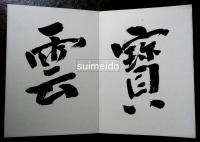 寶
雲
suimeido